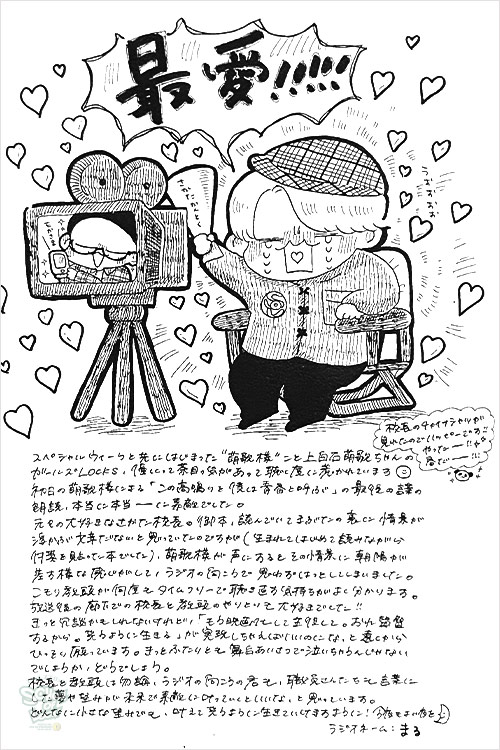 最愛!!!!!
さかた かんとく
うおおおお
校長のチャイナシャツが
見れたのでハッピーです!!
やったー!!
スペシャルウィークと共にはじまった"萌歌様"こと上白石萌歌ちゃんの
ガールズLOCKS!
初日の萌歌様による「この高鳴りを僕は青春と呼ぶ」の最後の章の
朗読、本当に本当ーーに素敵でした。
元々大好きなさかた校長。御本、読んでいてまぶたの裏に情景が
浮かぶ文章だないと思っていたのですが(生まれてはじめて読みながら
付箋を貼って本でした)、萌歌様が声にするとその情景に朝陽が
差す様な感じがして、ラジオの向こうで思わずほっとしてしまいました。
こもり教頭が何度もタイムフリーで聴き返す気持ちがよく分かります。
放送後の廊下での校長と教頭のやりとりも大好きでした!!
きっと冗談かもしれないけれど「もり映画化して主役して。おれ監督
するから。笑うように生きる」が実現しちゃえばいいのにな、と裏から
ひっそり願っています。きっとふたりとも舞台あいさつで泣いちゃうんじゃない
でしょうか、どうでしょう。
校長と教頭は勿論、ラジオの向こうの君も、聴取者さんたちも言葉に
した夢や望みが未来で素敵に叶っていくといいな、と思っています。
どんなに小さな望みでも、叶えて笑うように生きていけますように!今夜もよい夜を
ラジオネーム:まる